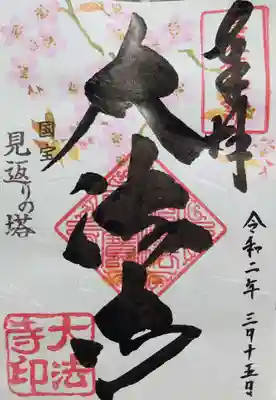 奉拝
令和二年 三月十五日
大法寺
國宝
見返りの塔
大法
寺印